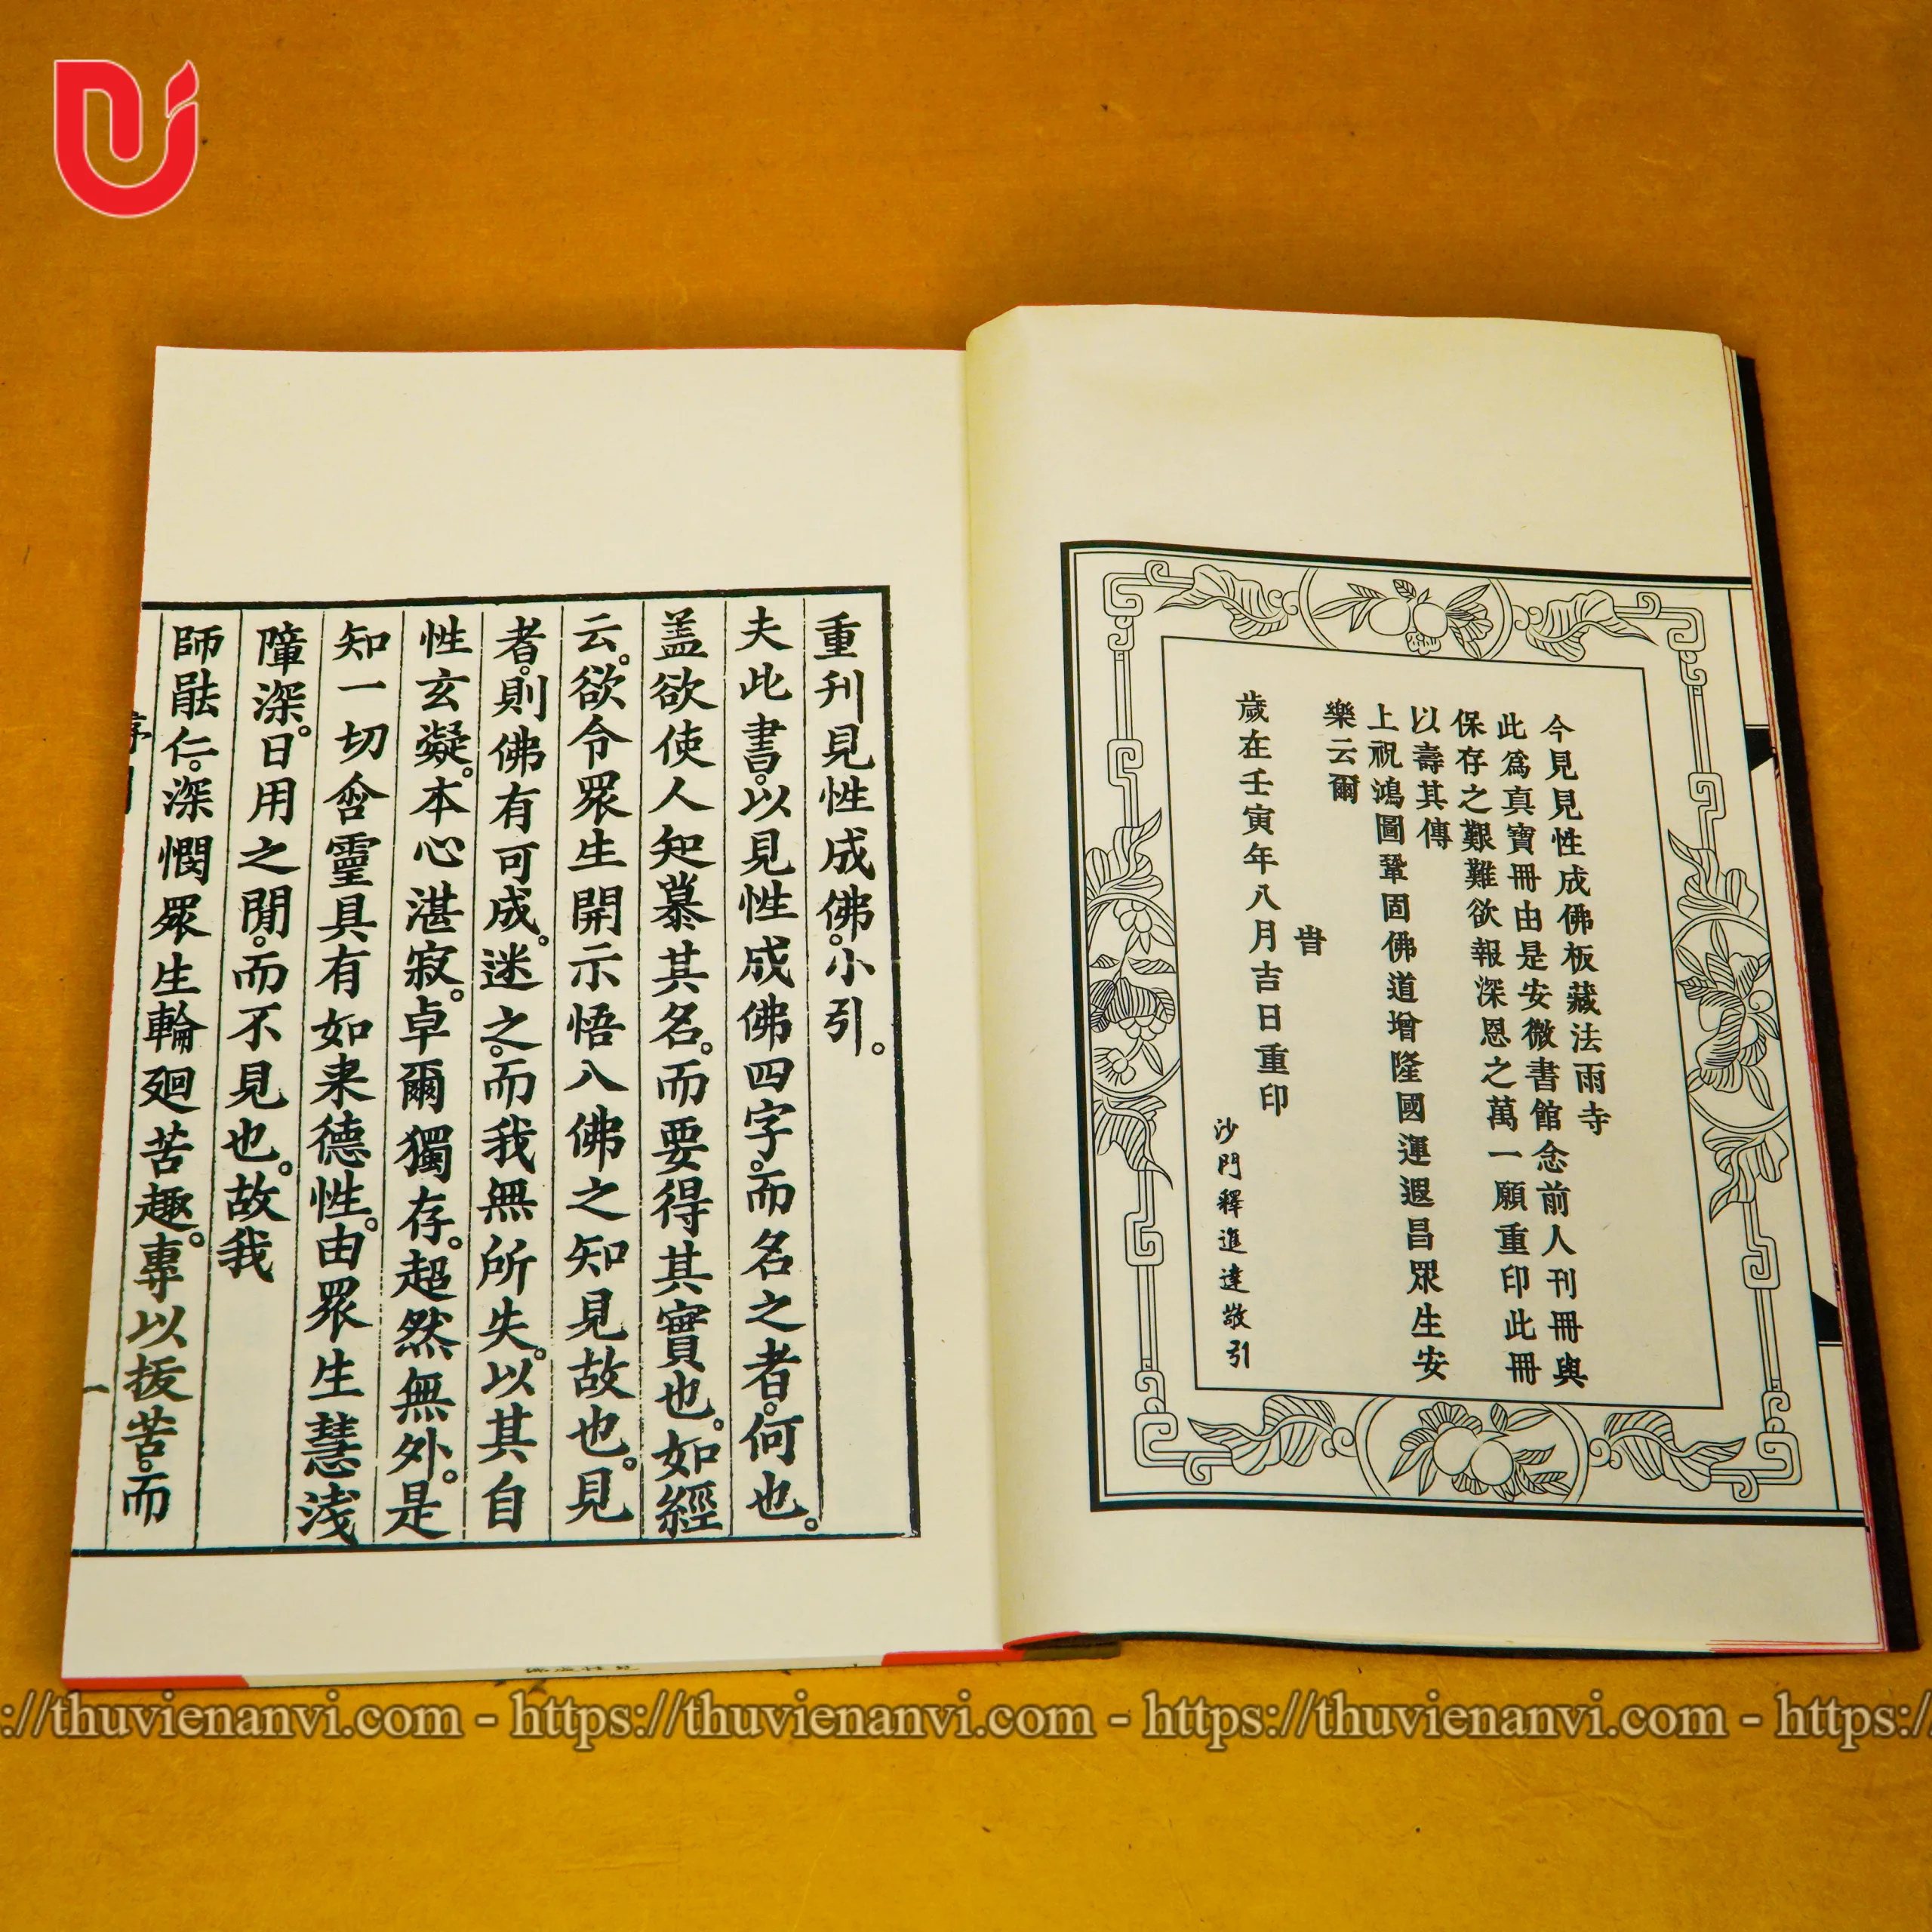 今見見性成佛板藏法雨寺
此爲真寶冊由是安微書館念前人刊冊與
保存之艱難欲報深恩之萬一願重印此冊
以壽其傳
上祝鴻圖鞏固佛道增隆國運遐昌眾生安
樂云爾
旹
歲在壬寅年八月吉日重印
沙門釋進達敬引
重刊見性成佛。小引。
夫此書。以見性成佛四字。而名之者。何也。
盖欲使人知慕其名。而要得其實也。如經
云。欲令眾生開示悟入佛之知見故也。見
者。則佛有可成。迷之。而我無所失。以其自
性玄凝。本心湛寂。卓爾獨存。超然無外。是
知一切含靈具有如来德性。由眾生慧淺
障深。日用之閒。而不見也。故我
師能仁。深憫眾生輪廻苦趣。專以拔苦。而
一
https://thuvienanvi.com - https://thuvienanvi.com - https://thuvienanvi.com - https:/